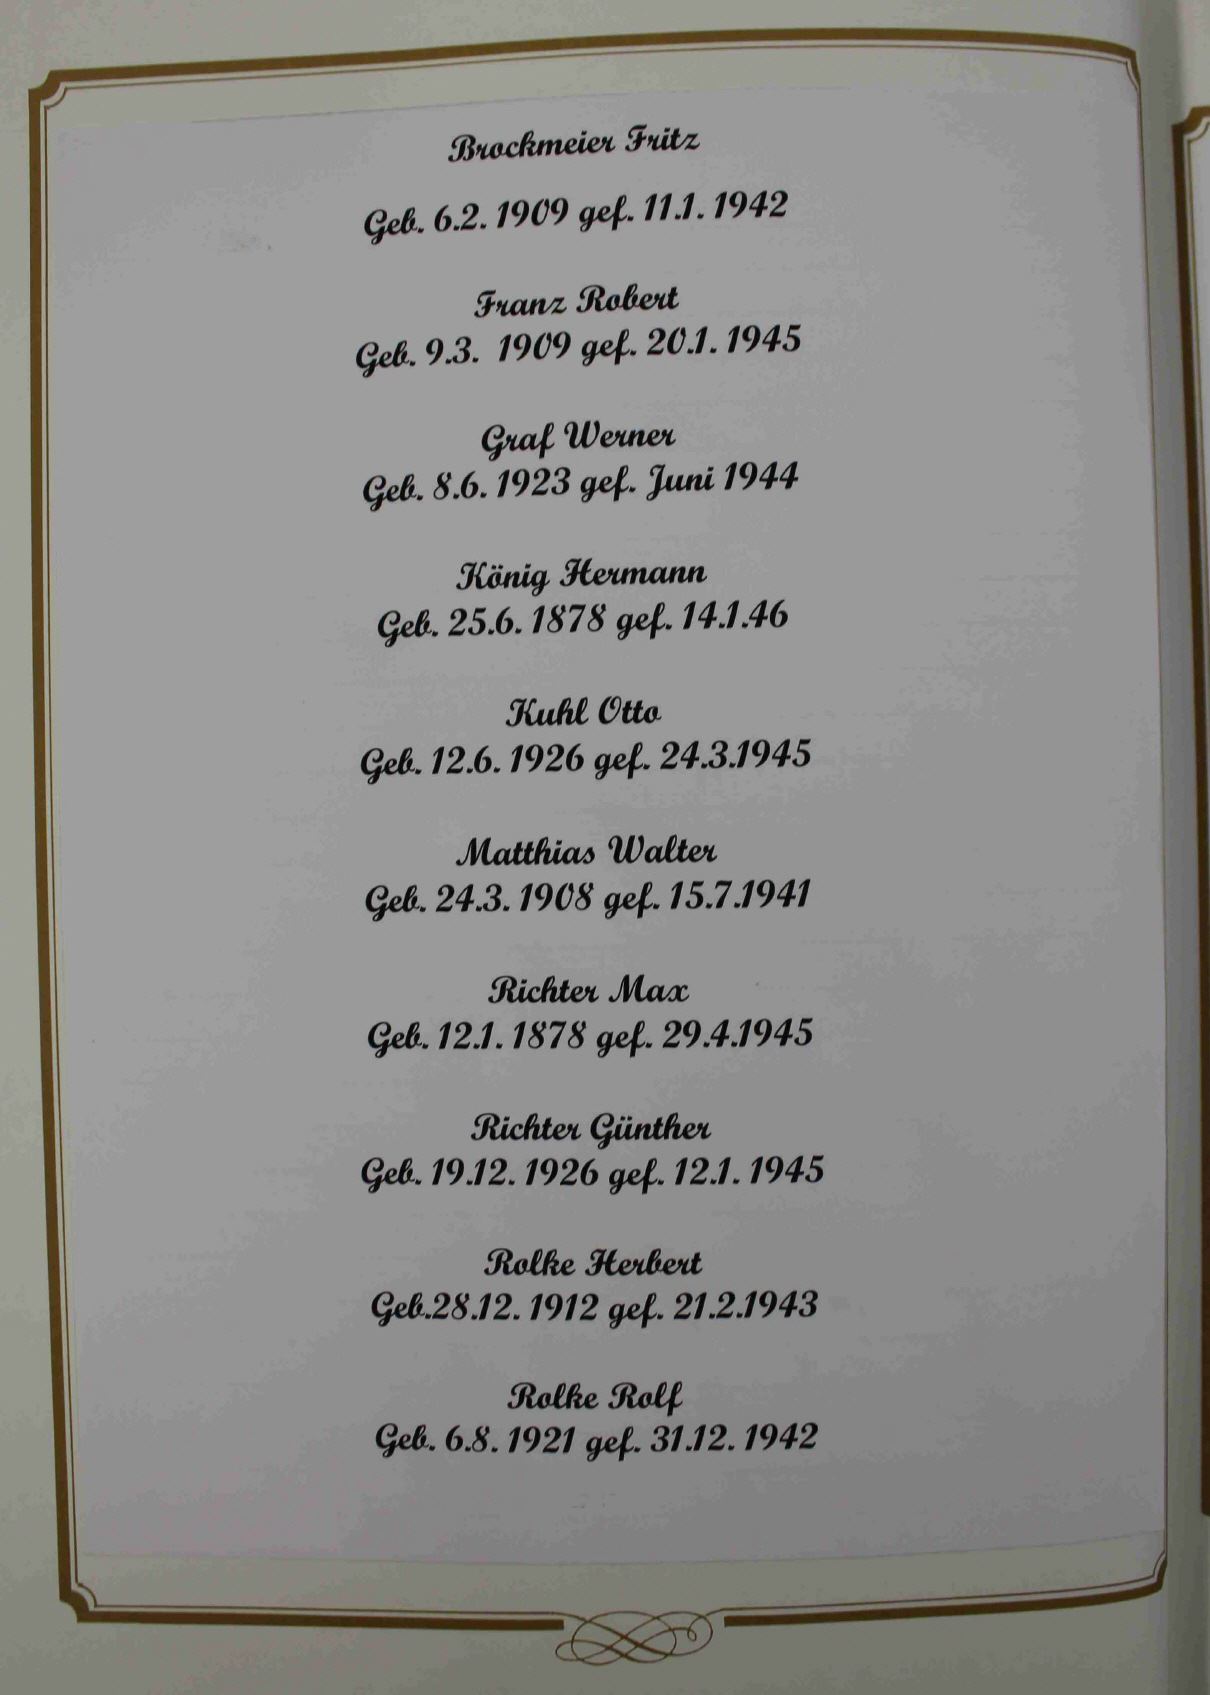 Brockmeier Fritz
Geb. 6.2. 1909 gef. 11.1. 1942
Franz Robert
Geb. 9.3. 1909 gef. 20.1. 1945
Graf Werner
Geb. 8.6. 1923 gef. Juni 1944
König Hermann
Geb. 25.6. 1878 gef. 14.1.46
Kuhl Otto
Geb. 12.6. 1926 gef. 24.3.1945
Matthias Walter
Geb. 24.3. 1908 gef. 15.7.1941
Richter Max
Geb. 12.1. 1878 gef. 29.4.1945
Richter Günther
Geb. 19.12. 1926 gef. 12.1. 1945
Rolke Herbert
Geb.28.12. 1912 gef. 21.2.1943
Rolke Rolf
Geb. 6.8. 1921 gef. 31.12. 1942